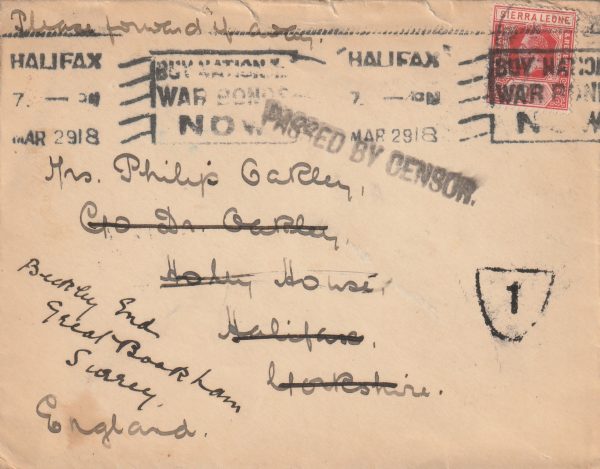 Please forward if away.
SIERRA LEONE
HALIFAX
7. — PM
MAR 29 18
BUY NATIONAL
WAR BONDS
NOW
HALIFAX
7. — PM
MAR 29 18
BUY NATION
WAR BOND
NOW
PASSED BY CENSOR.
Mrs. Philip Oakley,
C/o Dr. Oakley,
Holly House,
Halifax,
Yorkshire.
England.
Beckley End
Great Bookham
Surrey.
1